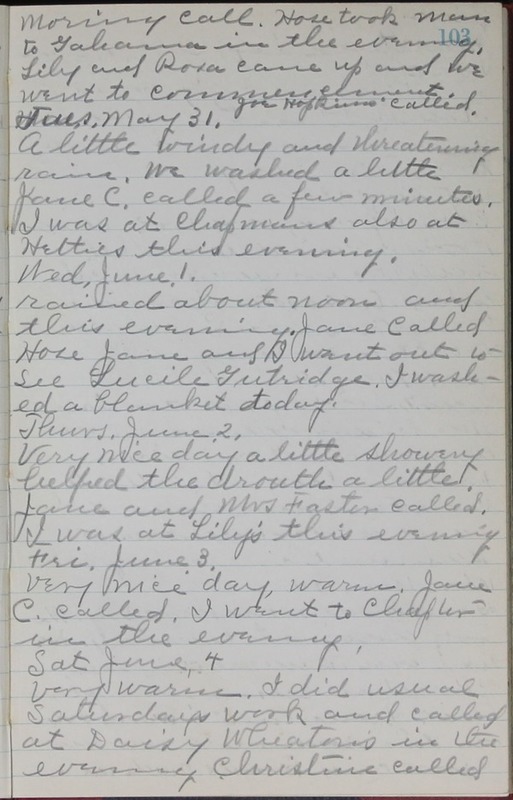 Moring call. Hose took Mam
103
to Gahanna in the evening,
Lily and Rosa came up and we
went to commencement.
Joe Hopkins called.
Tues. May 31.
A little windy and threatening
rain. We washed a little
Jane C. called a few minutes.
I was at Chapmans also at
Hetties this evening.
Wed, June 1.
rained about noon and
this evening. Jane called
Hose Jane and I went out to
See Lucile Gutridge. I wash-
ed a blanket today.
Thurs. June 2.
Very nice day a little showery
helped the drouth a little.
Jane and Mrs Faster called.
I was at Lily's this evening
Fri. June 3.
Very nice day, warm. Jane
C. called. I went to
in the evening,
Sat June, 4
Very warm. I did usual
Saturdays work and called
at Daisy Wheaton's in the
evening Christine called